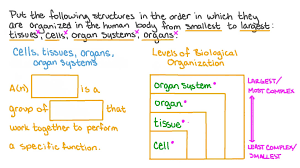 Put the following structures in the order in which they
are organized in the human body from smallest to largest:
tissues, cells, organ systems, organs.
Cells, tissues, organs,
organ systems
A(n) is a
group of that
work together to perform
a specific function.
Levels of Biological
Organization
organ system
organ
tissue
cell
LARGEST/
MOST COMPLEX
LEAST COMPLEX/
SMALLEST